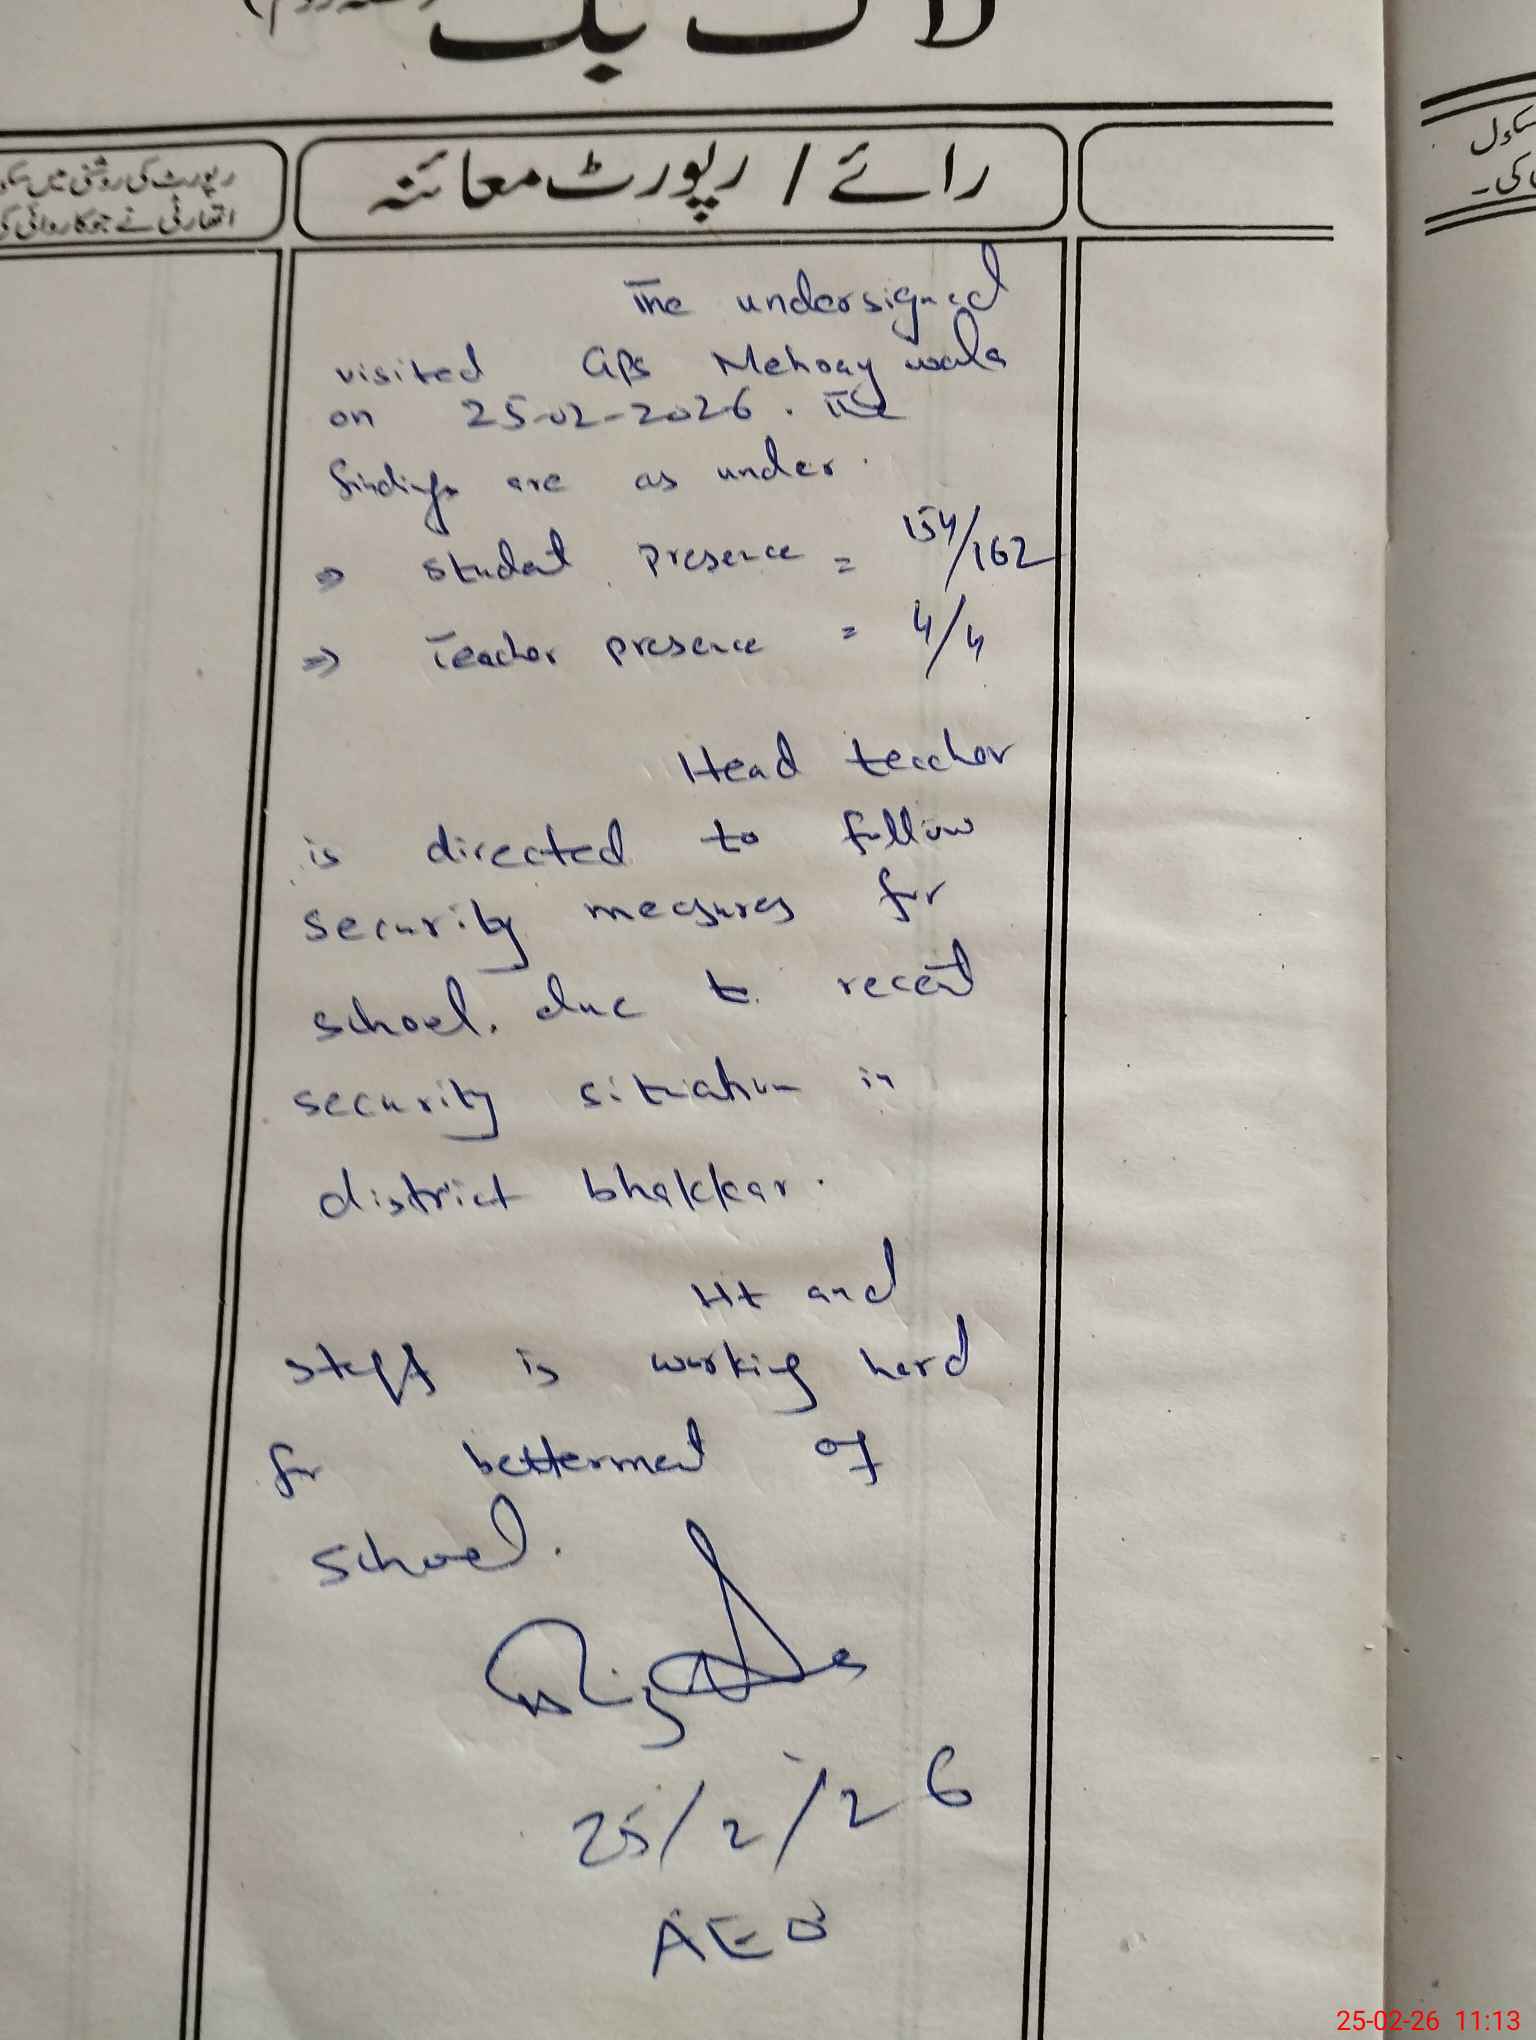 لاگ بک
رائے / رپورٹ معائنہ
رپورٹ کی روشنی میں
اتھارٹی نے جو کاروائی کی
The undersigned
visited GPS Mehoay wala
on 25-02-2026. The
findings are as under.
⇒ student presence = 154/162
⇒ Teacher presence = 4/4
Head teacher
is directed to follow
security measures for
school. due to recent
security situation in
district bhakkar.
Ht and
staff is working hard
for betterment of
school.
25/2/26
AEO
25-02-26 11:13